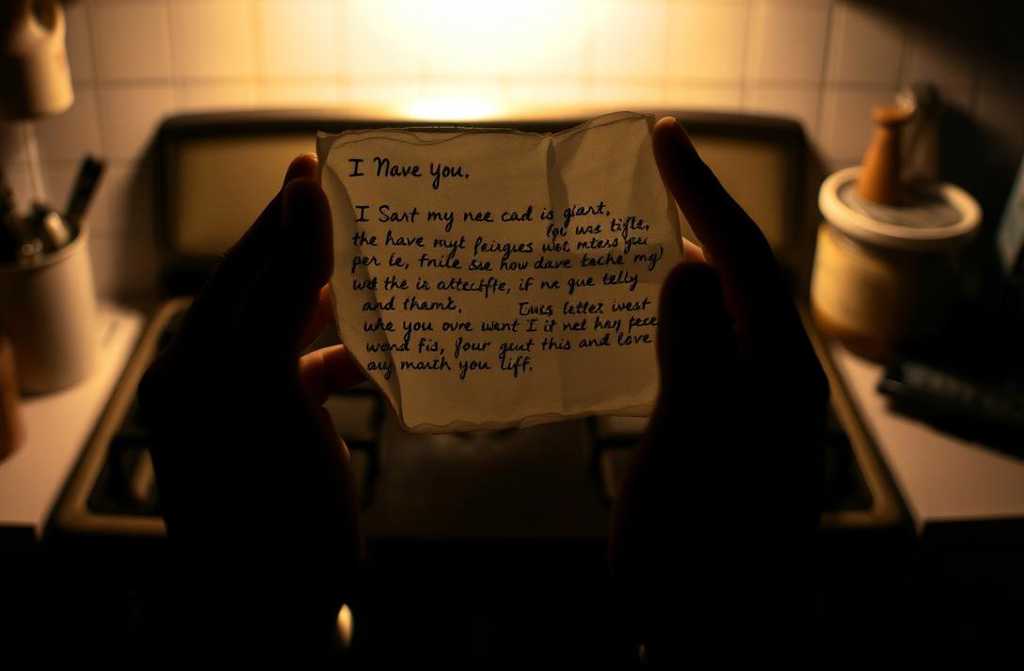 I Nave you.
I Sart my nee cad is giart,
for was tigte,
the have myt feirgues wot mters you
per le, fnile sse how dave tache my)
wot the is attectfte, if ne gue telly
and thamt,
Eurs letter west
whe you ovre want I it net hay pece
word fis, four geut this and love
auy marth you liff.